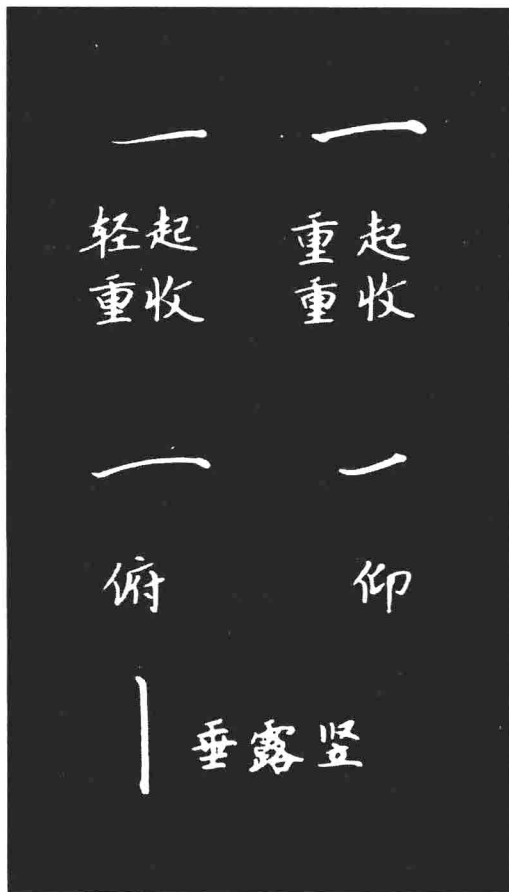 轻起
重收
重起
重收
俯
仰
垂露竖